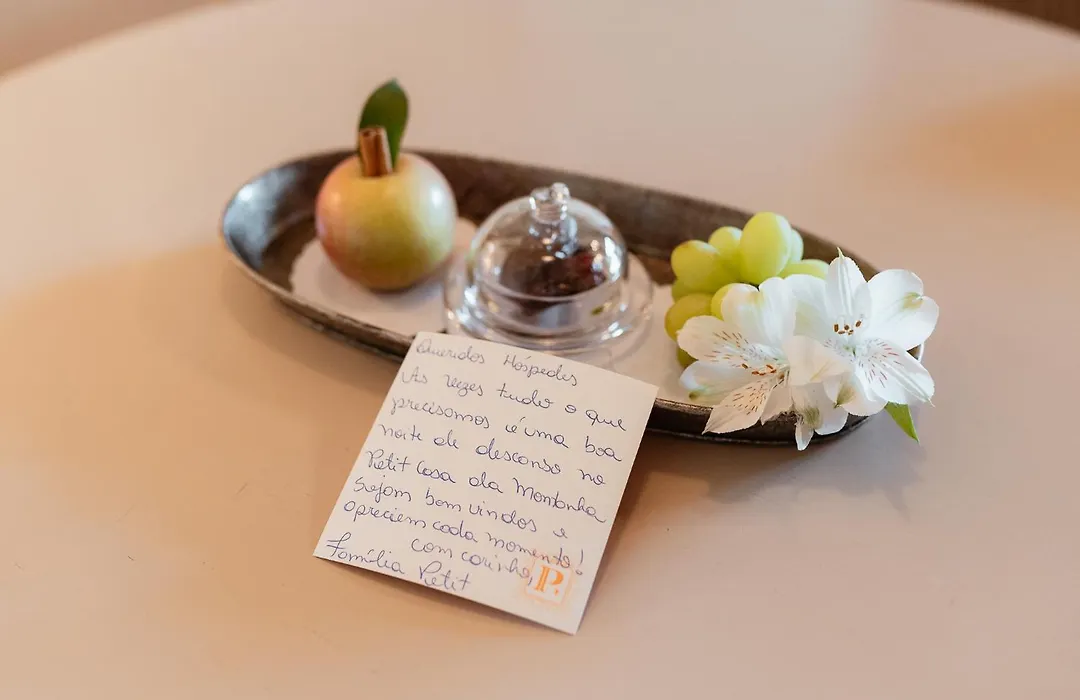 Queridos Hóspedes
As vezes tudo o que
precisamos é uma boa
noite de descanso na
Petit Casa da Montanha
Sejam bem vindos e
apreciem cada momento!
com carinho,
Família Petit
P.